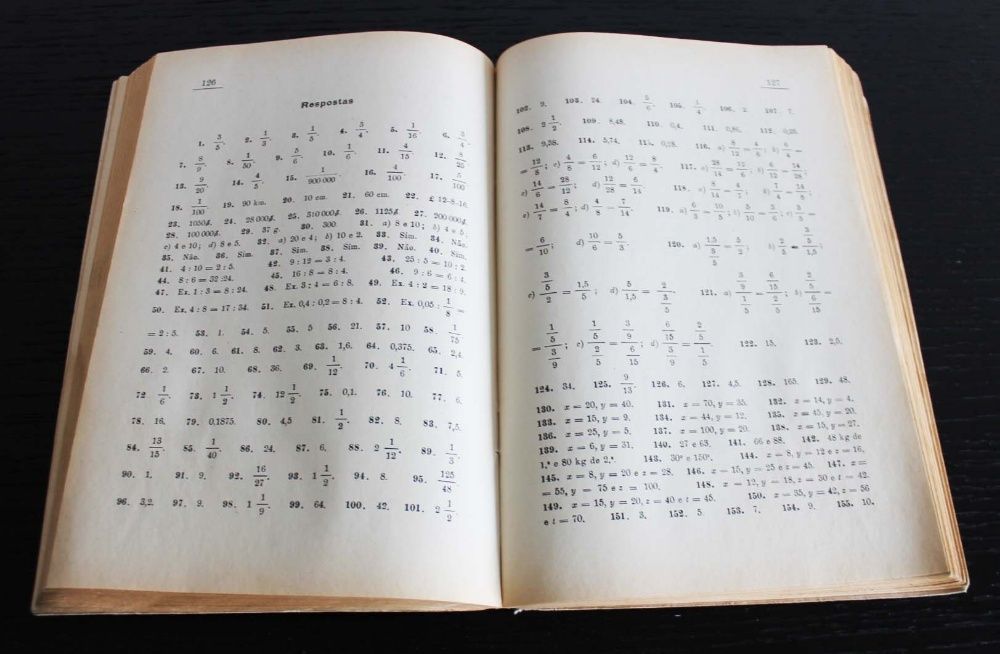 126
Respostas
1. 3/5. 2. 1/3. 3. 1/5. 4. 5/4. 5. 1/16. 6.
7. 8/9. 8. 1/50. 9. 5/6. 10. 1/6. 11. 4/15. 12. 8/25.
13. 9/20. 14. 4/5. 15. 1/900 000. 16. 4/100. 17. 5/100
18. 1/100. 19. 90 km. 20. 10 cm. 21. 60 cm. 22. £ 12-8-16.
23. 1050$. 24. 28 000$. 25. 310 000$. 26. 1125$. 27. 200 000$.
28. 100 000$. 29. 37 g. 30. 300 31. a) 8 e 10; b) 4 e 5;
c) 4 e 10; d) 8 e 5. 32. a) 20 e 4; b) 10 e 2. 33. Sim. 34. Não.
35. Não. 36. Sim. 37. Sim. 38. Sim. 39. Não. 40. Sim.
41. 4 : 10 = 2 : 5. 42. 9 : 12 = 3 : 4. 43. 25 : 5 = 10 : 2.
44. 8 : 6 = 32 : 24. 45. 16 : 8 = 8 : 4. 46. 9 : 6 = 6 : 4.
47. Ex. 1 : 3 = 8 : 24. 48. Ex. 3 : 4 = 6 : 8. 49. Ex. 4 : 2 = 18 : 9.
50. Ex. 4 : 8 = 17 : 34. 51. Ex. 0,4 : 0,2 = 8 : 4. 52. Ex. 0,05 : 1/8 =
= 2 : 5. 53. 1. 54. 5. 55. 5 56. 21. 57. 10 58. 1/75
59. 4. 60. 6. 61. 8. 62. 3. 63. 1,6. 64. 0,375. 65. 2,4.
66. 2. 67. 10. 68. 36. 69. 1/12. 70. 4 1/6. 71. 5.
72 1/6. 73. 1 1/2. 74. 12 1/2. 75. 0,1. 76. 10. 77. 6.
78. 16. 79. 0,1875. 80. 4,5 81. 1/2. 82. 8. 83. 7,5.
84. 13/15. 85. 1/40. 86. 24. 87. 6. 88. 2 1/12. 89. 1/3.
90. 1. 91. 9. 92. 16/27. 93. 1 1/2. 94. 8. 95. 125/48.
96. 3,2. 97. 9. 98. 1 1/9. 99. 64. 100. 42. 101. 2 1/2.
127
102. 9. 103. 24. 104. 5/6. 105. 1/4. 106. 2. 107. 7.
108. 2 1/2. 109. 8,48. 110. 0,4. 111. 0,86. 112. 0,25.
113. 9,38. 114. 5,74. 115. 0,28. 116. a) 8/12 = 4/6; b) 6/4 =
= 12/8; c) 4/8 = 6/12; d) 12/6 = 8/4. 117. a) 28/14 = 12/6; b) 6/12 = 14/28
c) 14/6 = 28/12; d) 12/28 = 6/14 118. a) 8/14 = 4/7; b) 7/4 = 14/8
c) 14/7 = 8/4; d) 4/8 = 7/14. 119. a) 6/3 = 10/5; b) 5/10 = 3/6; c)
= 6/10; d) 10/6 = 5/3. 120. a) 1,5/(3/5) = 5/2; b) 2/5 = (3/5)/1,5;
c) (3/5)/2 = 1,5/5; d) 5/1,5 = 2/(3/5). 121. a) (3/9)/(1/5) = (6/15)/(2/5); b) (2/5)/(6/15) =
= (1/5)/(3/9); c) (1/5)/(2/5) = (3/9)/(6/15); d) (6/15)/(3/9) = (2/5)/(1/5) 122. 15. 123. 2,5.
124. 34. 125. 9/13. 126. 6. 127. 4,5. 128. 165. 129. 48.
130. x = 20, y = 40. 131. x = 70, y = 35. 132. x = 14, y = 4.
133. x = 15, y = 9. 134. x = 44, y = 12. 135. x = 45, y = 20.
136. x = 25, y = 5. 137. x = 100, y = 20. 138. x = 15, y = 27.
139. x = 6, y = 31. 140. 27 e 63. 141. 66 e 88. 142. 48 kg de
1.ª e 80 kg de 2.ª 143. 30° e 150°. 144. x = 8, y = 12 e z = 16.
145. x = 8, y = 20 e z = 28. 146. x = 15, y = 25 e z = 45. 147. x =
= 55, y = 75 e z = 100. 148. x = 12, y = 18, z = 30 e t = 42.
149. x = 15, y = 20, z = 40 e t = 45. 150. x = 35, y = 42, z = 56
e t = 70. 151. 3. 152. 5. 153. 7. 154. 9. 155. 10.